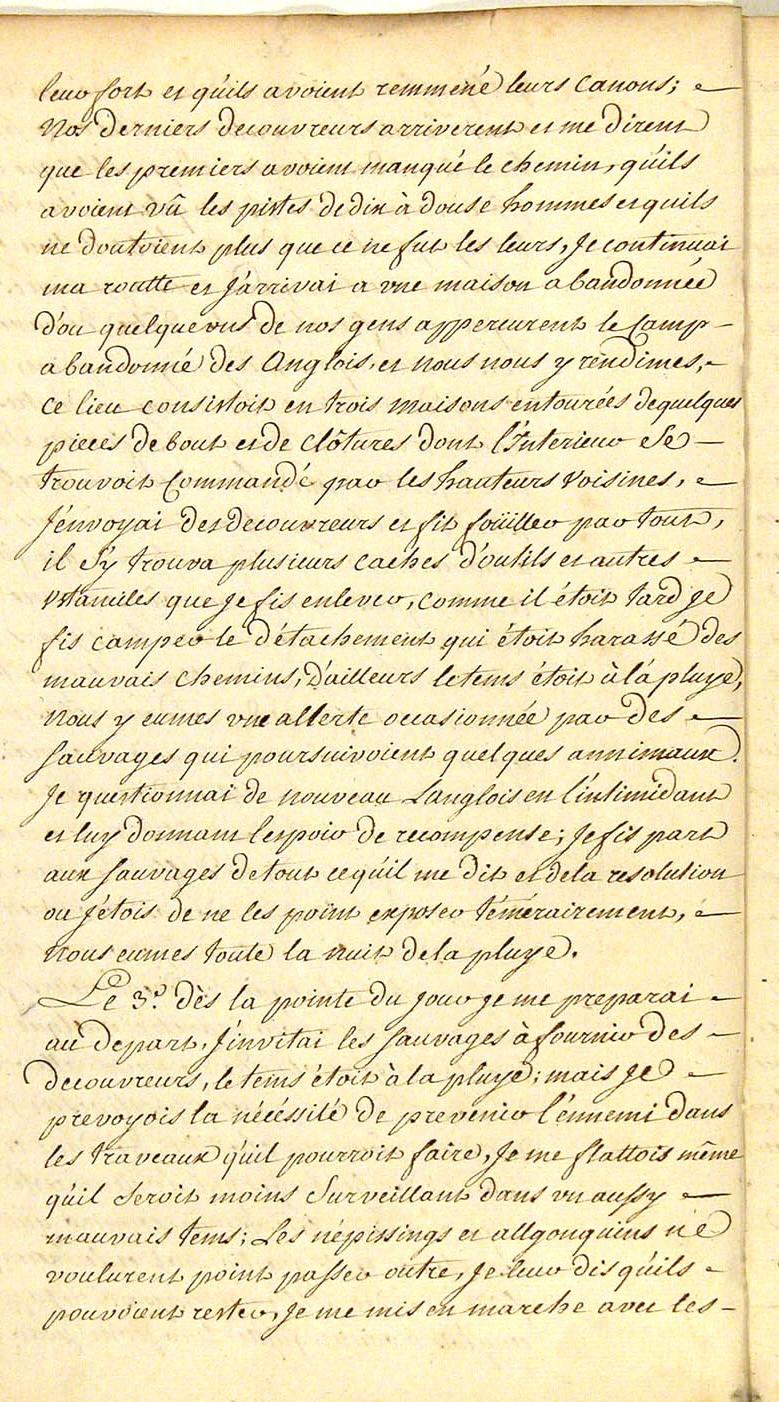 leur fort et qu'ils avoient remmené leurs Canons;
Nos derniers decouvreurs arriverent et me dirent
que les premiers avoient manqué le chemin, qu'ils
avoient vû les pistes de dix à douse hommes et quils
ne doutoient plus que ce ne fut les leurs, Je continuai
ma routte et J'arrivai a une maison abandonnée
d'ou quelques uns de nos gens apperceurent le Camp
abandonné des Anglois, et nous nous y rendimes,
ce lieu consistoit en trois maisons entourées de quelques
pieces de bout et de Clôtures dont l'Interieur Se
trouvoit Commandé par les hauteurs voisines,
J'envoyai des decouvreurs et fit foüiller par tout,
il s'y trouva plusieurs caches d'outils et autres
Ustanciles que Je fis enlever, comme il étoit tard Je
fis camper le détachement qui étoit harassé des
mauvais chemins, D'ailleurs le tems étoit à la pluye,
Nous y eumes une allerte occasionnée par des
Sauvages qui poursuivoient quelques annimaux.
Je questionnai de nouveau L'anglois en l'intimidant
et luy donnant l'espoir de recompense; Je fis part
aux Sauvages de tout ce qu'il me dit et de la resolution
ou J'étois de ne les point exposer témérairement,
Nous eumes toute la nuit de la pluye.
Le 3.e dès la pointe du Jour Je me preparai
au depart, J'invitai les Sauvages à fournir des
decouvreurs, le tems étoit à la pluye; mais Je
prevoyois la nécéssité de prevenir l'énnemi dans
les travaux qu'il pourroit faire, Je me flattois même
qu'il seroit moins Surveillant dans un aussy
mauvais tems; Les népissings et allgonquins ne
voulurent point passer outre, Je leur dis qu'ils
pouvoient rester, Je me mis en marche avec les